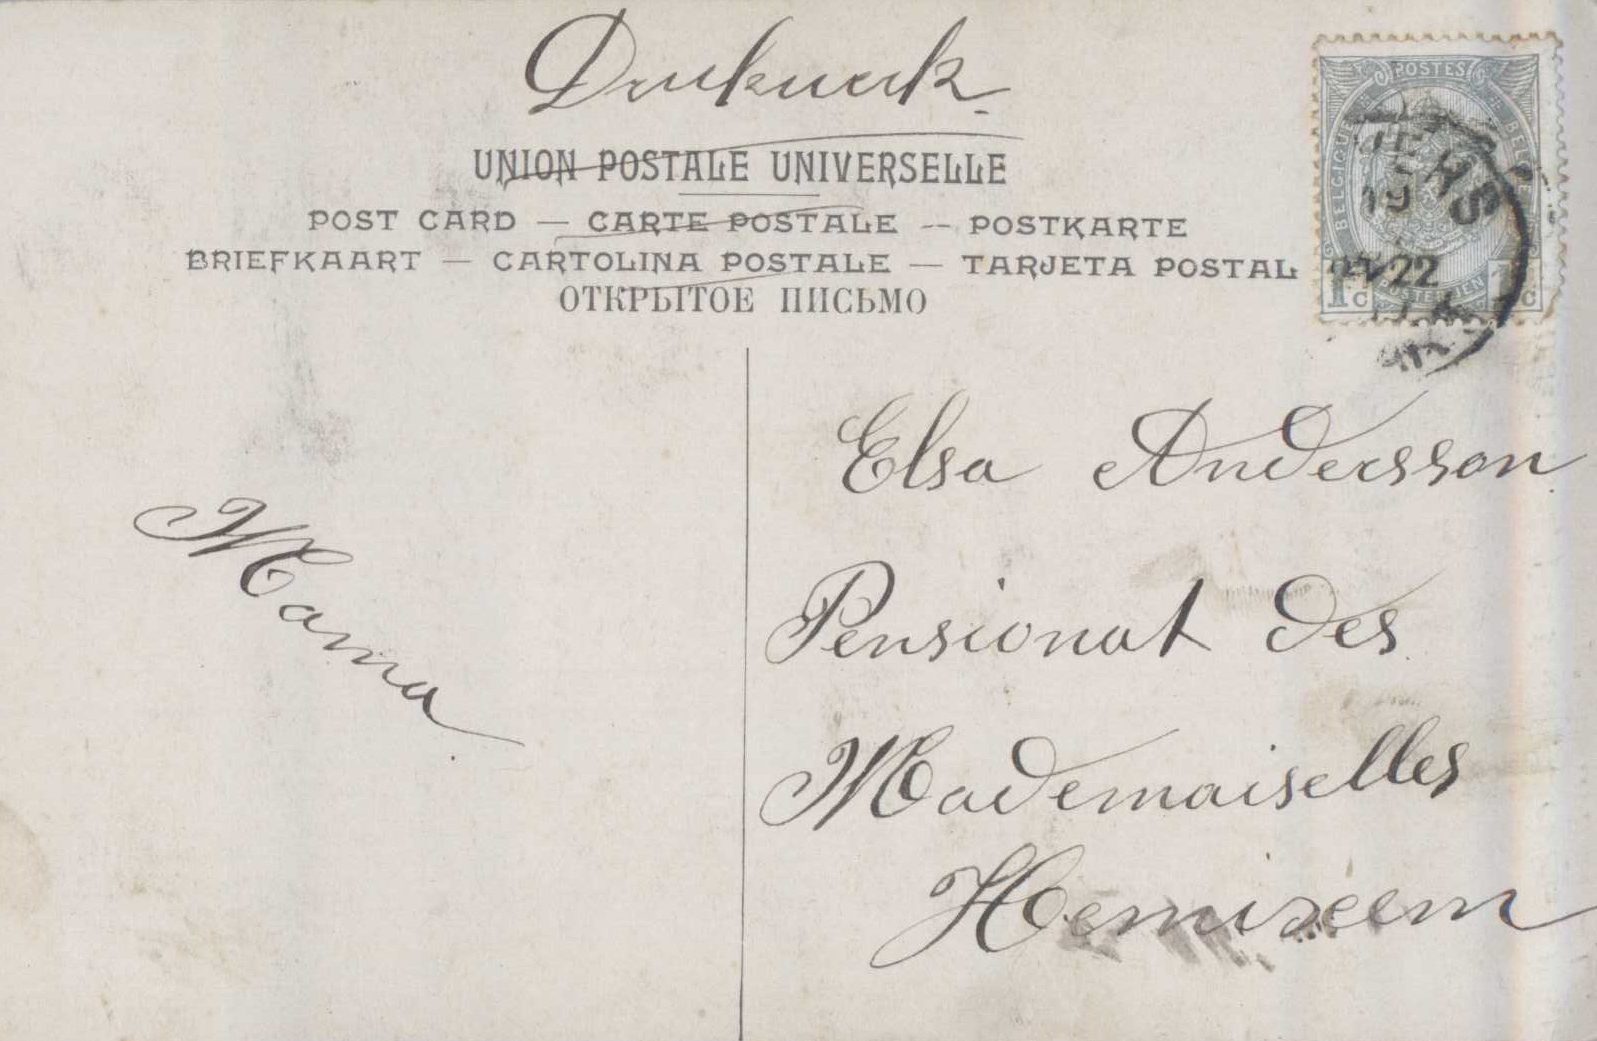 Drukwerk
UNION POSTALE UNIVERSELLE
POST CARD — CARTE POSTALE — POSTKARTE
BRIEFKAART — CARTOLINA POSTALE — TARJETA POSTAL
ОТКРЫТОЕ ПИСЬМО
POSTES
BELGIQUE
1c
19
22
Elsa Andersson
Pensionat des
Mademaiselles
Hemixem
Mama